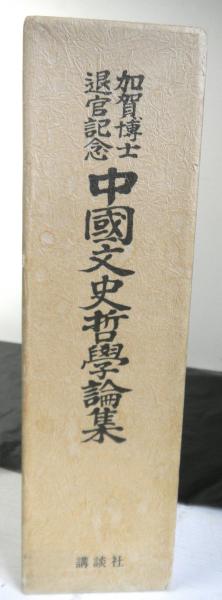 加賀博士
退官記念
中國文史哲學論集
講談社